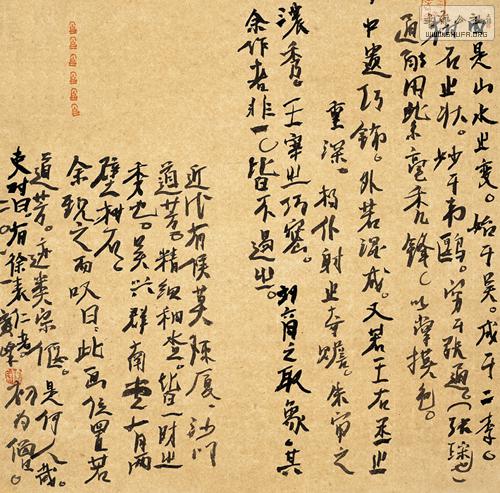 由是山水之变。始于吴。成于二李。
树石之状。妙于韦鸥。穷于张通(张璪也)
通能用紫毫秃锋(以掌摸色。
中遗巧饰。外若混成。又若王右丞之
重深。杨仆射之奇赡朱审之
浓秀。王宰之巧密。刘商之取象其
余作者非一(皆不过之。
近代有侯莫陈厦、沙门
道芳。精细稠沓。皆一时之
秀也。吴兴群南堂有两
壁树石
余观之而叹曰:此画位置若
道芳。迹类宗偃。是何人哉。
吏对曰。有徐表仁者初为僧。
WWW.SHUFA.ORG